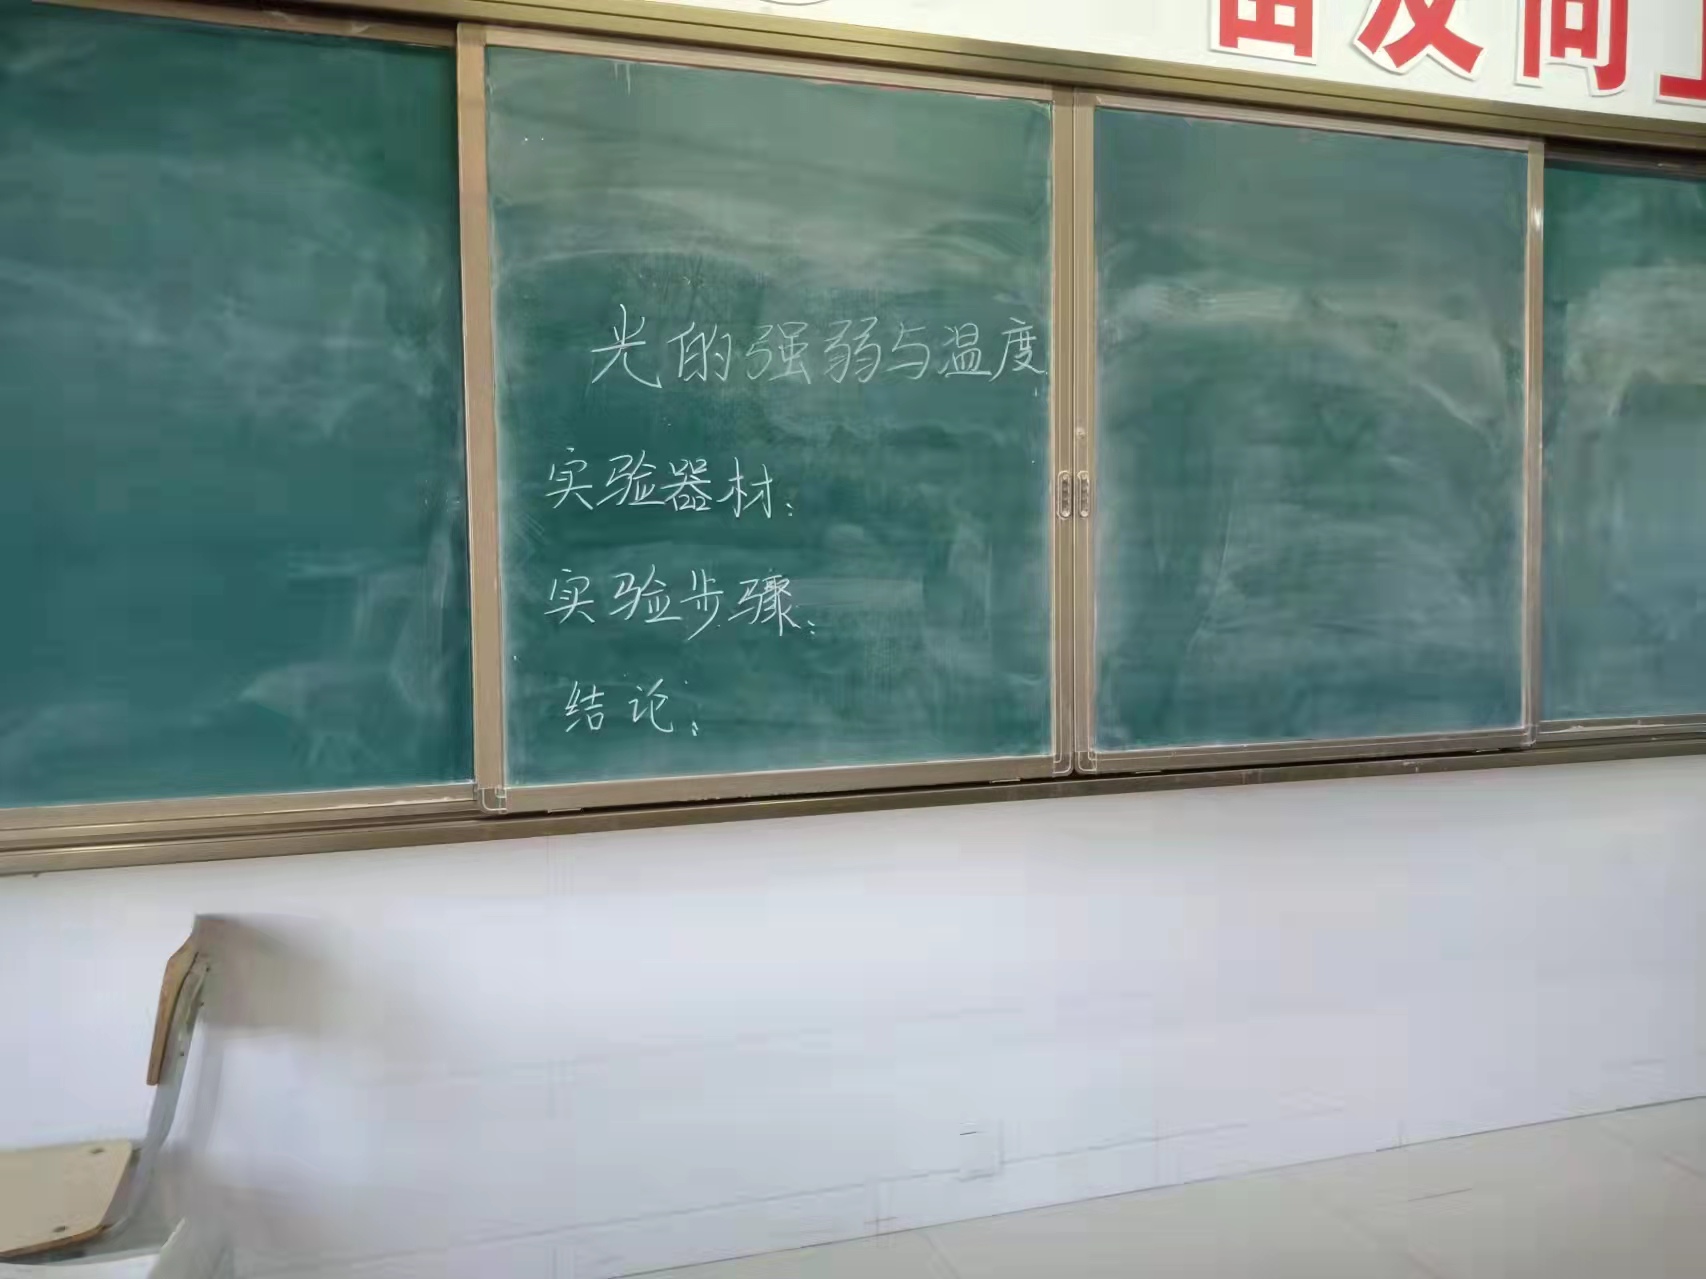 奋发向上
光的强弱与温度
实验器材：
实验步骤：
结论：